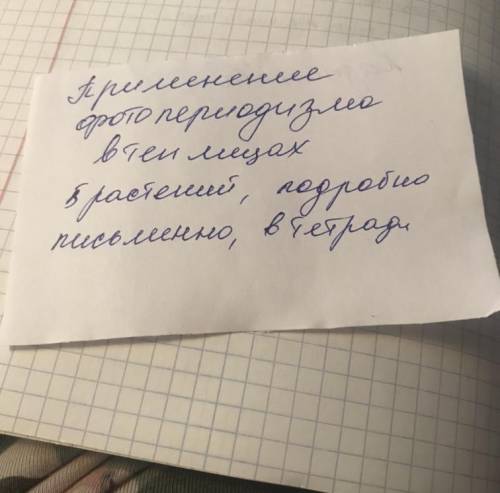 Применение
фотопериодизма
в теплицах
5 растений, подробно
письменно, в тетради